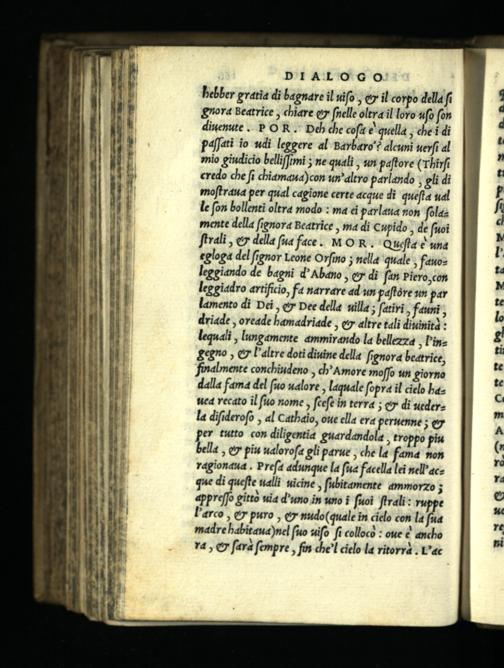 DIALOGO
hebber gratia di bagnare il uiso, & il corpo della si
gnora Beatrice, chiare & snelle oltra il loro uso son
diuenute. POR. Deh che cosa è quella, che i di
passati io udi leggere al Barbaro? alcuni uersi al
mio giudicio bellissimi; ne quali, un pastore (Thirsi
credo che si chiamaua) con un'altro parlando, gli di
mostraua per qual cagione certe acque di questa ual
le son bollenti oltra modo: ma ei parlaua non sola=
mente della signora Beatrice, ma di Cupido, de suoi
strali, & della sua face. MOR. Questa è una
egloga del signor Leone Orsino; nella quale, fauo=
leggiando de bagni d'Abano, & di san Piero, con
leggiadro artificio, fa narrare ad un pastore un par
lamento di Dei, & Dee della uilla; satiri, fauni,
driade, oreade hamadriade, & altre tali diuinità:
lequali, lungamente ammirando la bellezza, l'in=
gegno, & l'altre doti diuine della signora beatrice,
finalmente conchiudeno, ch'Amore mosso un giorno
dalla fama del suo ualore, laquale sopra il cielo ha=
uea recato il suo nome, scese in terra; & di ueder=
la disideroso, al Cathaio, oue ella era peruenne; &
per tutto con diligentia guardandola, troppo piu
bella, & piu ualorosa gli parue, che la fama non
ragionaua. Presa adunque la sua facella lei nell'ac=
que di queste ualli uicine, subitamente ammorzo;
appresso gittò uia d'uno in uno i suoi strali: ruppe
l'arco, & puro, & nudo (quale in cielo con la sua
madre habitaua) nel suo uiso si collocò: oue è ancho
ra, & sarà sempre, fin che'l cielo la ritorrà. L'ac